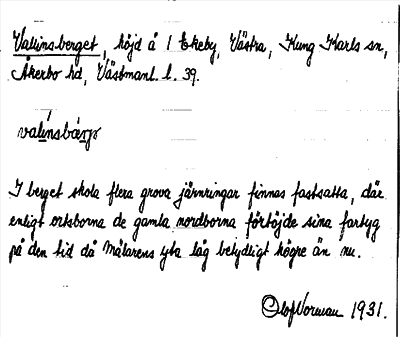 Vallinsberget, höjd å 1 Ekeby, Västra, Kung Karls sn,
Åkerbo hd, Västmanl. l. 39.
valinsbärjə
I berget skola flera grova järnringar finnas fastsatta, där
enligt ortsborna de gamla nordborna förtöjde sina fartyg
på den tid då Mälarens yta låg betydligt högre än nu.
Olof Vorman 1931.